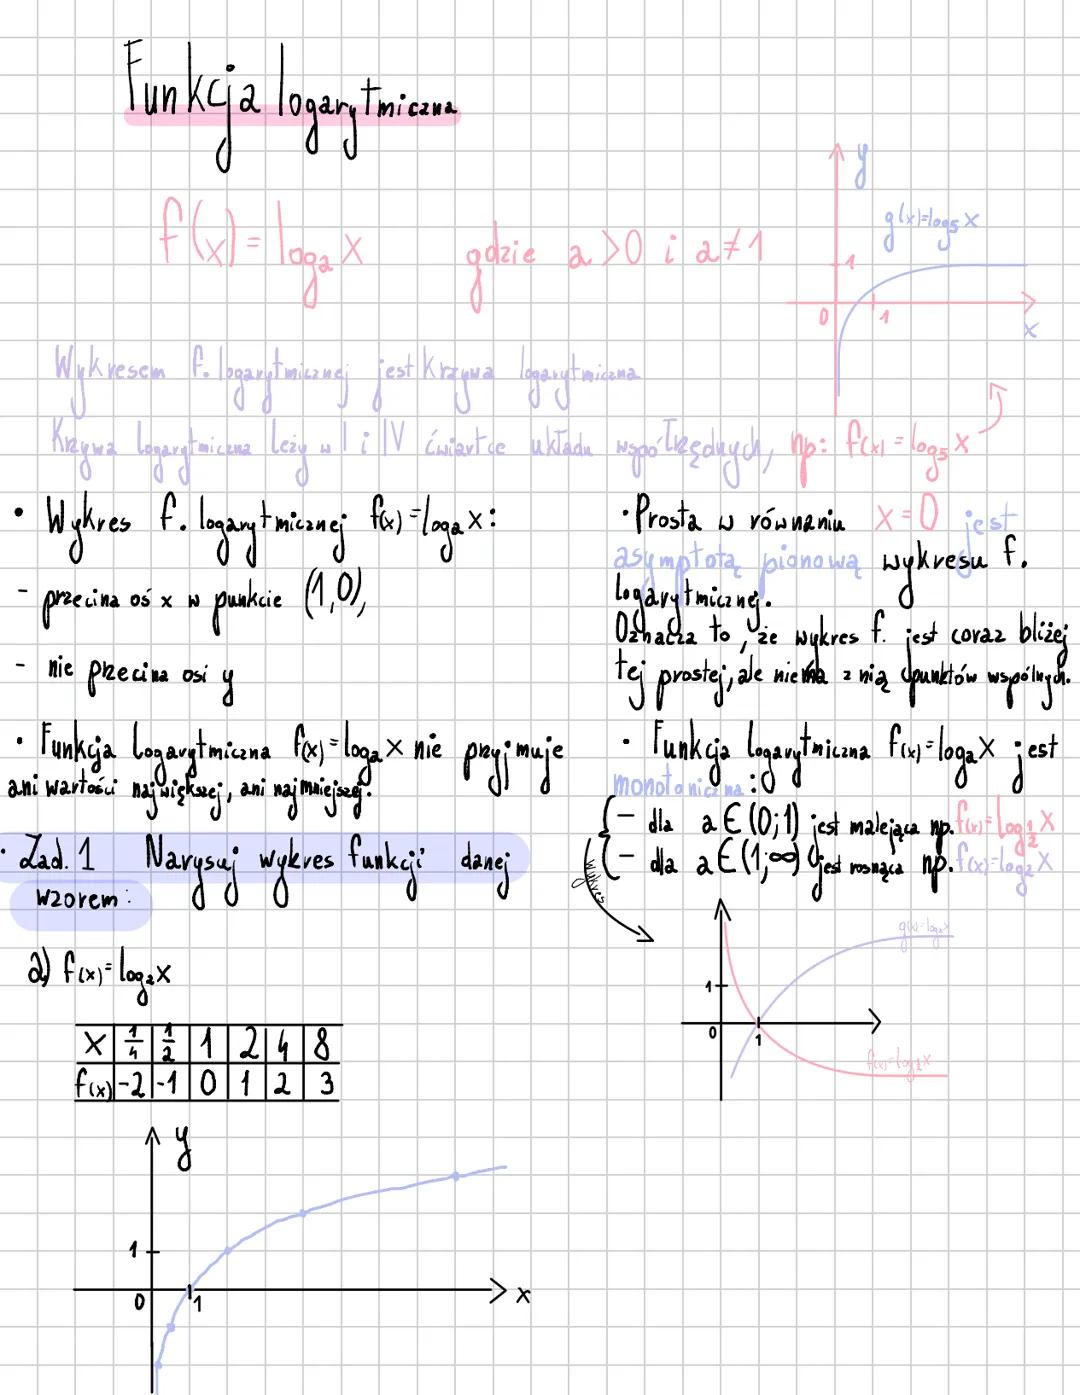 Funkcja logarytmiczna
f(x) = logₐ x gdzie a > 0 i a ≠ 1
y
g(x)=log₅ x
1
0
1
x
Wykresem f. logarytmicznej jest krzywa logarytmiczna
Krzywa logarytmiczna leży w I i IV ćwiartce układu współrzędnych, np: f(x) = log₅ x
• Wykres f. logarytmicznej f(x) = logₐ x :
- przecina oś x w punkcie (1,0),
- nie przecina osi y
• Funkcja logarytmiczna f(x) = logₐ x nie przyjmuje
ani wartości największej, ani najmniejszej.
• Zad. 1 Narysuj wykres funkcji danej
wzorem:
a) f(x) = log₂ x
x | 1/4 | 1/2 | 1 | 2 | 4 | 8
f(x) | -2 | -1 | 0 | 1 | 2 | 3
y
1
0
1
x
• Prosta w równaniu x = 0 jest
asymptotą pionową wykresu f.
logarytmicznej.
Oznacza to, że wykres f. jest coraz bliżej
tej prostej, ale nie ma z nią punktów wspólnych.
• Funkcja logarytmiczna f(x) = logₐ x jest
monotoniczna :
- dla a ∈ (0;1) jest malejąca np. f(x) = log½ x
- dla a ∈ (1;∞) jest rosnąca np. f(x) = log₂ x
wykres
g(x)=log₂x
1
0
1
f(x)=log½ x